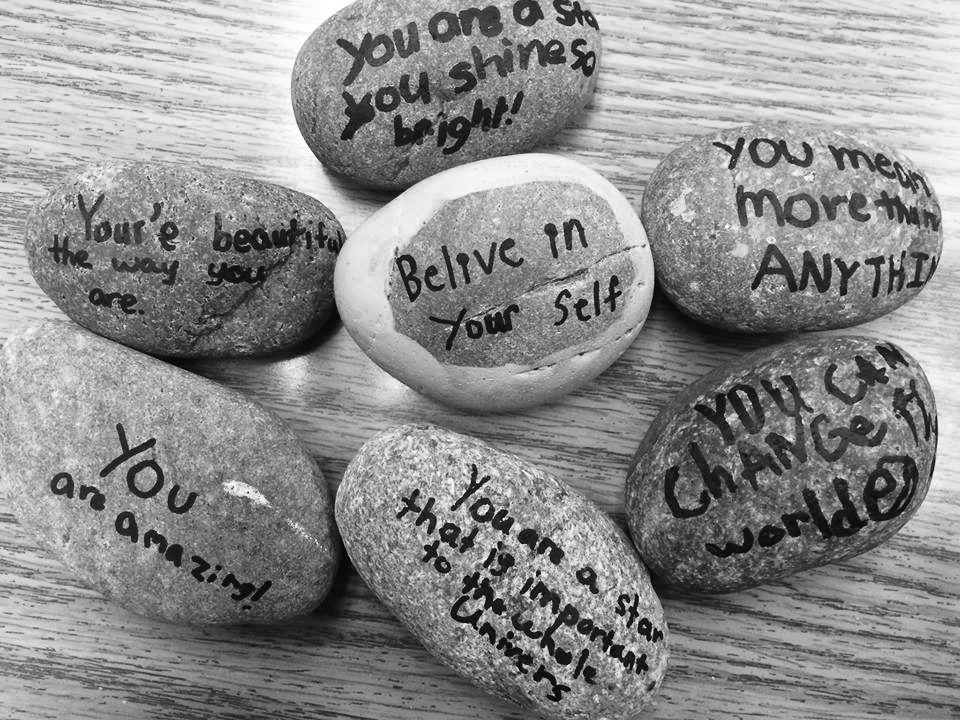 You are a sta
you shine so
bright!
Your'e beautiful
the way you
are.
Belive in
your self
you mean
more than
ANYTHIN
YOU
are amazing!
You are a star
that is important
to the whole
Univers
YOU CAN
ChANGe
world